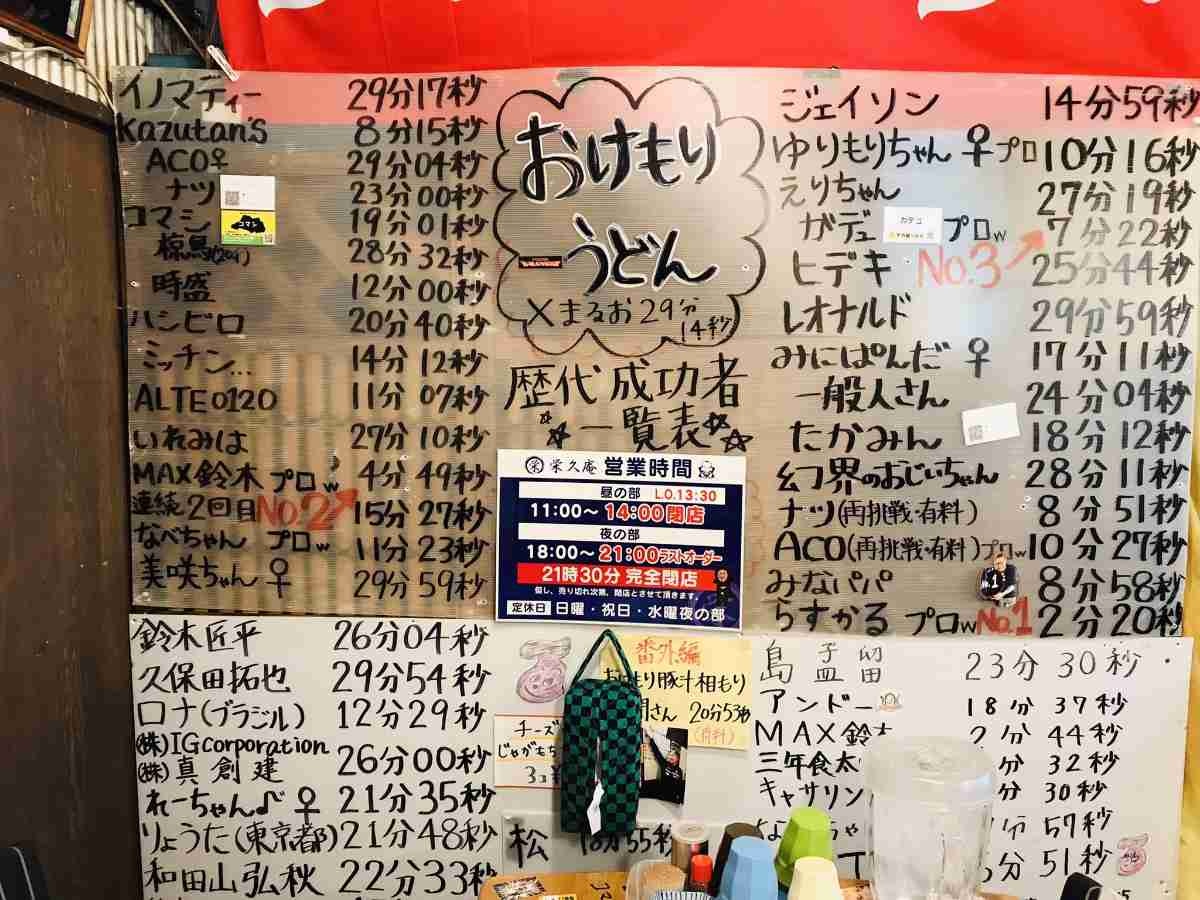 イノマティー 29分17秒
Kazutan's 8分15秒
ACO♀ 29分04秒
ナツ 23分00秒
コマシ 19分01秒
コマシ
28分32秒
時盛 12分00秒
ハシビロ 20分40秒
ミッチン... 14分12秒
ALTE0120 11分07秒
いれみは 27分10秒
MAX鈴木 プロw 4分49秒
連続2回目 No.2 15分27秒
なべちゃん プロw 11分23秒
美咲ちゃん♀ 29分59秒
鈴木匠平 26分04秒
久保田拓也 29分54秒
ロナ(ブラジル) 12分29秒
(株)IGcorporation
(株)真創建 26分00秒
れーちゃん♪♀ 21分35秒
りょうた(東京都) 21分48秒
和田山弘秋 22分33秒
おけもり
うどん
×まるお29分
14秒
歴代成功者
☆一覧表☆
栄 栄久庵 営業時間
昼の部 L.O.13:30
11:00〜14:00閉店
夜の部
18:00〜21:00ラストオーダー
21時30分 完全閉店
但し、売り切れ次第、閉店とさせて頂きます。
定休日 日曜・祝日・水曜夜の部
番外編
おけもり豚汁相もり
20分53秒
(有料)
チーズ
じゃがもち
3コ
松 55秒
ジェイソン 14分59秒
ゆりもりちゃん ♀プロ 10分16秒
えりちゃん 27分19秒
ガデュ プロw 7分22秒
カデュ
ヒデキ No.3 25分44秒
レオナルド 29分59秒
みにぱんだ♀ 17分11秒
一般人さん 24分04秒
たかみん 18分12秒
幻界のおじいちゃん 28分11秒
ナツ(再挑戦・有料) 8分51秒
ACO(再挑戦・有料)プロw 10分27秒
みなパパ 8分58秒
らすかる プロw No.1 2分20秒
23分30秒
アンドー 18分37秒
MAX鈴木 2分44秒
三年食太 32秒
キャサリン 30秒
57秒
51秒